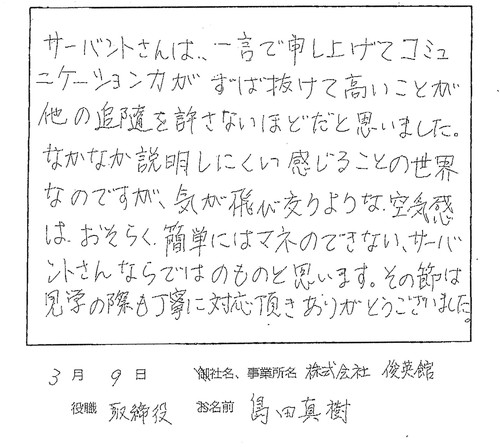 サーバントさんは、一言で申し上げてコミュ
ニケーション力がずば抜けて高いことが
他の追随を許さないほどだと思いました。
なかなか説明しにくい感じることの世界
なのですが、気が飛び交うような空気感
は、おそらく、簡単にはマネのできない、サーバ
ントさんならではのものと思います。その節は
見学の際も丁寧に対応頂きありがとうございました。
3月9日 御社名、事業所名 株式会社 俊英館
役職 取締役 お名前 島田真樹